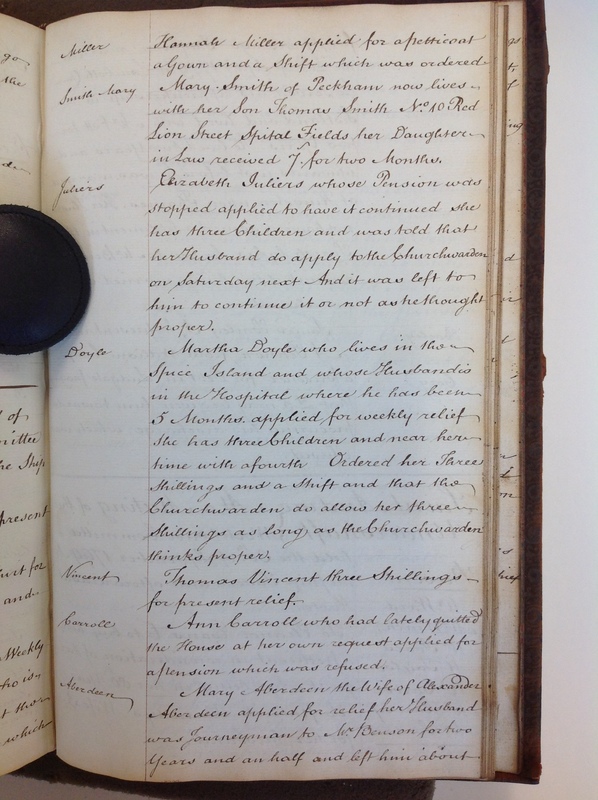 Miller
Hannah Miller applied for a petticoat
a Gown and a Shift which was ordered
Smith Mary
Mary Smith of Peckham now lives
with her Son Thomas Smith No. 10 Red
Lion Street Spital Fields her Daughter
in Law received 7/. for two Months.
Juliers
Elizabeth Juliers whose Pension was
stopped applied to have it continued she
has three Children and was told that
her Husband do apply to the Churchwarden
on Saturday next And it was left to
him to continue it or not as he thought
proper.
Doyle
Martha Doyle who lives in the
Spice Island and whose Husband is
in the Hospital where he has been
5 Months applied for weekly relief
She has three Children and near her
time with a fourth Ordered her Three
Shillings and a Shift and that the
Churchwarden do allow her three
Shillings as long as the Churchwarden
thinks proper.
Vincent
Thomas Vincent three Shillings
for present relief
Carroll
Ann Carroll who had lately quitted
the House at her own request applied for
a pension which was refused.
Aberdeen
Mary Aberdeen the Wife of Alexander
Aberdeen applied for relief her Husband
was Journeyman to Mr. Benson for two
Years and an half and left him about